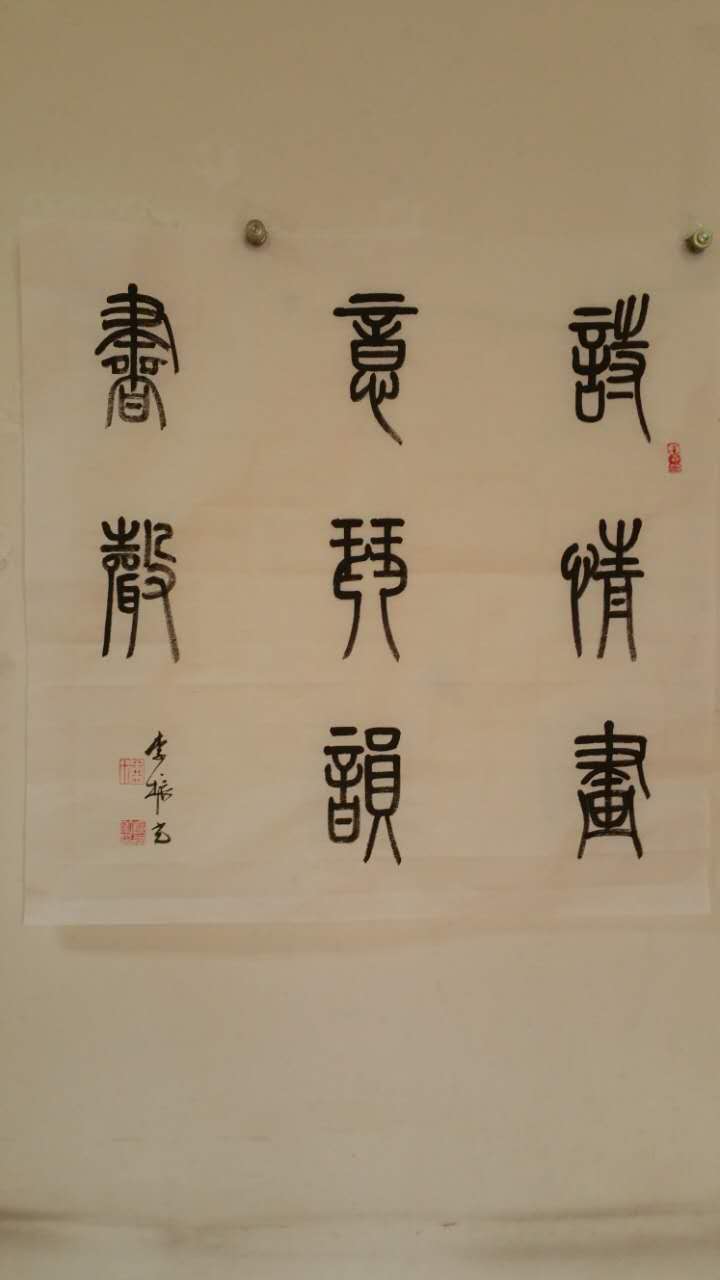 詩情畫
意琴韻
書聲
李振芝